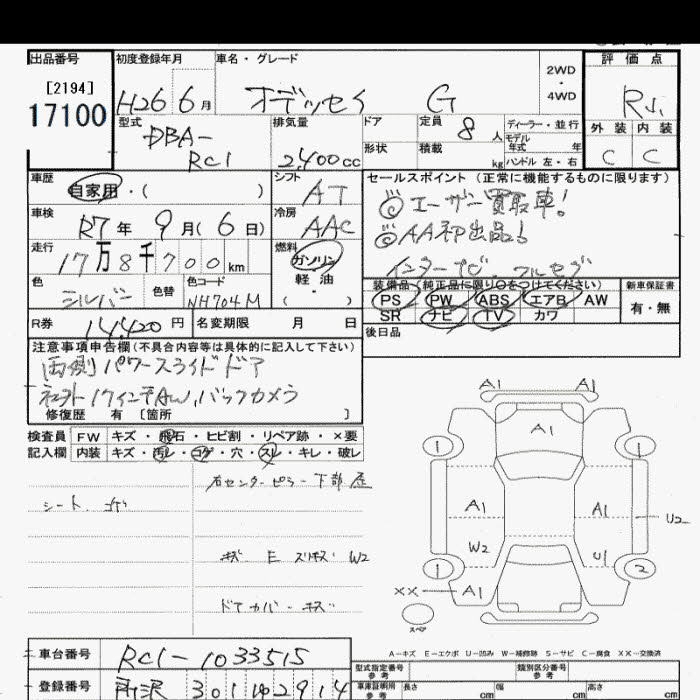 出品番号
[2194]
17100
初度登録年月
H26 6月
車名・グレード
オデッセイ G
2WD
・
4WD
評価点
R
外装 内装
C C
型式
DBA-
RC1
排気量
2,400cc
ドア
形状
定員 8人
積載 kg
ディーラー・並行
モデル
年式 年
ハンドル 左・右
車歴
自家用・( )
シフト
AT
車検
R7年 9月( 6日)
冷房
AAC
走行
17万8千700km
燃料
ガソリン
軽油・
( )
色
シルバー
色替
色コード
NH704M
R券
14,420円
名変期限 月 日
セールスポイント(正常に機能するものに限ります)
◎ユーザー買取車!
◎AA初出品!
インターナビ、フルセグ
装備品(純正品に限り○をつけてください)
PS PW ABS エアB AW
SR ナビ TV カワ
新車保証書
有・無
後日品
注意事項申告欄(不具合内容等は具体的に記入して下さい)
両側パワースライドドア
社外17インチAW、バックカメラ
修復歴 有 [箇所 ]
検査員 FW キズ・飛石・ヒビ割・リペア跡・×要
記入欄 内装 キズ・汚レ・コゲ・穴・スレ・キレ・破レ
右センターピラー下部
シート
キズ E スリキズ W2
ドアカバーキズ
A1 A1
A1
1 1
A1 A1
U2
W2 U1
1 2
XX A1
スペア
A-キズ E-エクボ U-凹み W-補修跡 S-サビ C-腐食 XX-交換済
車台番号 RC1-1033515
登録番号 所沢 301
型式指定番号
参考
類別区分番号
参考
車庫証明用
参考
長さ cm 幅 cm 高さ cm